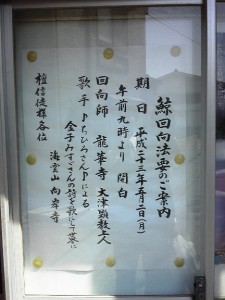 鯨回向法要のご案内
期日 平成二十三年五月二日(月)
午前九時より 開白
回向師 龍華寺 大津顕教上人
歌手♪ちひろさん♪による
金子みすゞさんの詩を歌にのせて
檀信徒様各位
海雲山 向岸寺